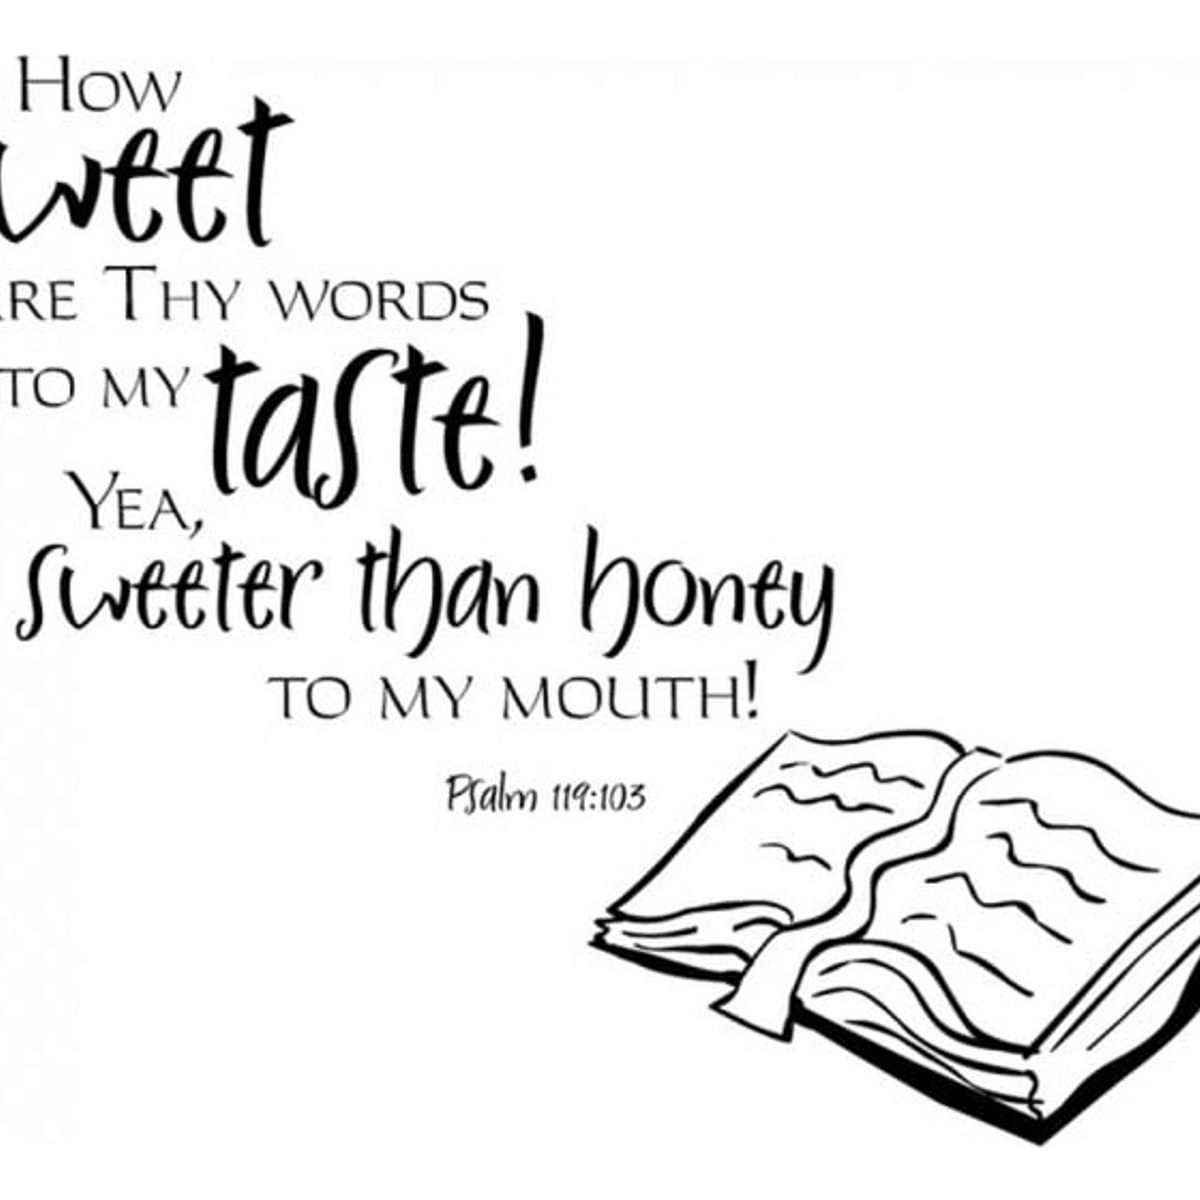 How
weet
RE THY WORDS
TO MY taste!
YEA,
sweeter than honey
TO MY MOUTH!
Psalm 119:103